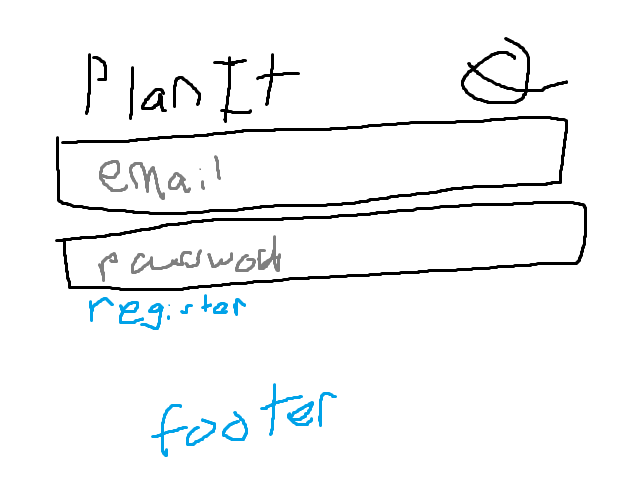 PlanIt
email
passwod
register
footer